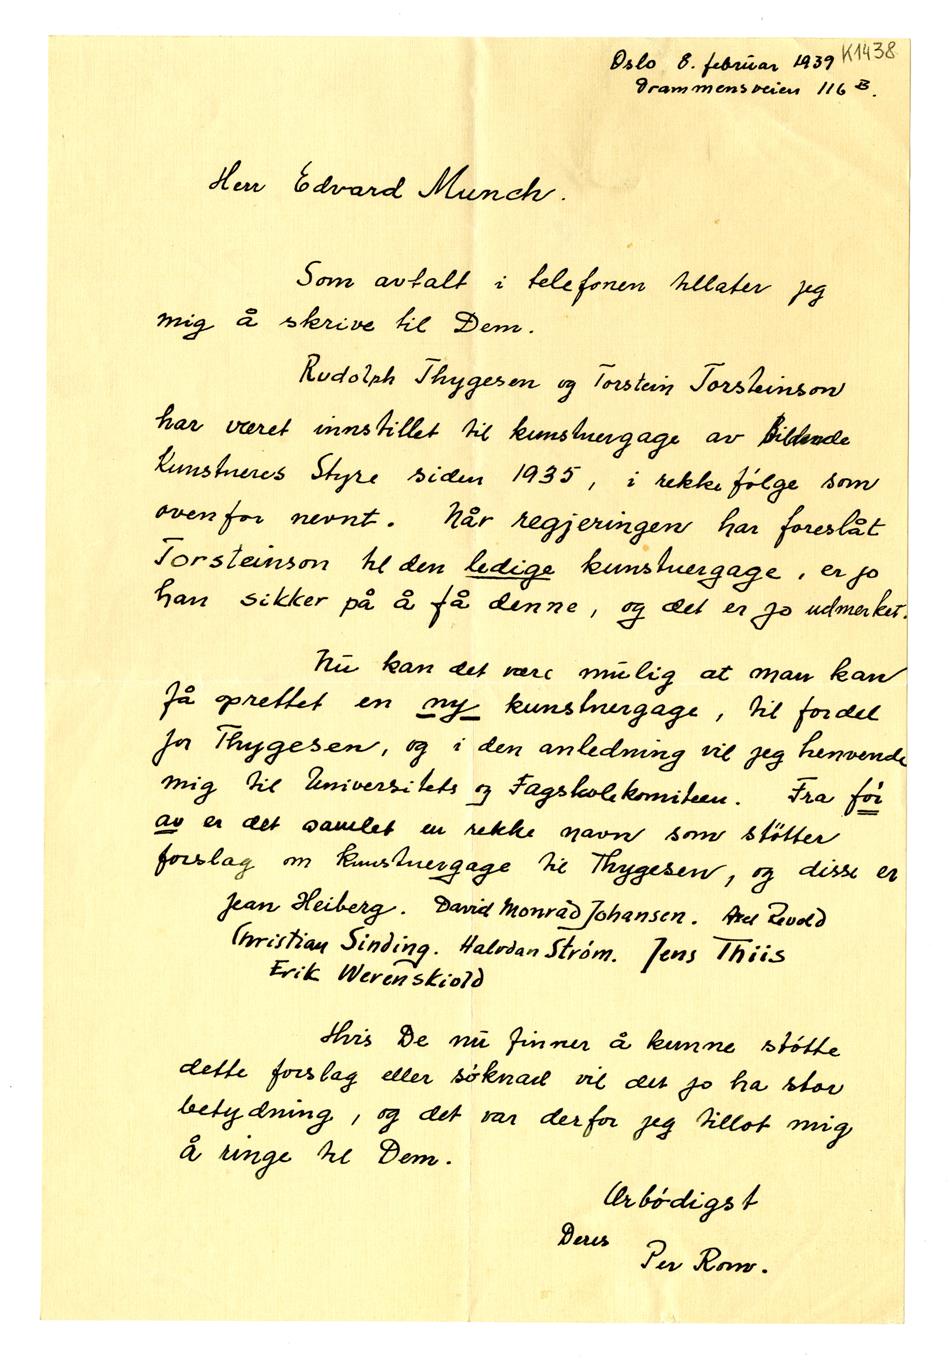 Oslo 8. februar 1939 K1438
Drammensveien 116 B.
Herr Edvard Munch.
Som avtalt i telefonen tillater jeg
mig å skrive til Dem.
Rudolph Thygesen og Torstein Torsteinson
har været innstillet til kunstnergage av Bildende
Kunstneres Styre siden 1935, i rekkefølge som
ovenfor nevnt. Når regjeringen har foreslåt
Torsteinson til den ledige kunstnergage, er jo
han sikker på å få denne, og det er jo udmerket.
Nu kan det være mulig at man kan
få oprettet en ny kunstnergage, til fordel
for Thygesen, og i den anledning vil jeg henvende
mig til Universitets og Fagskolekomiteen. Fra før
av er det samlet en rekke navn som støtter
forslag om kunstnergage til Thygesen, og disse er
Jean Heiberg. David Monrad Johansen. Axel Revold
Christian Sinding. Halvdan Strøm. Jens Thiis
Erik Werenskiold
Hvis De nu finner å kunne støtte
dette forslag eller søknad vil det jo ha stor
betydning, og det var derfor jeg tillot mig
å ringe til Dem.
Ærbødigst
Deres
Per Rom.